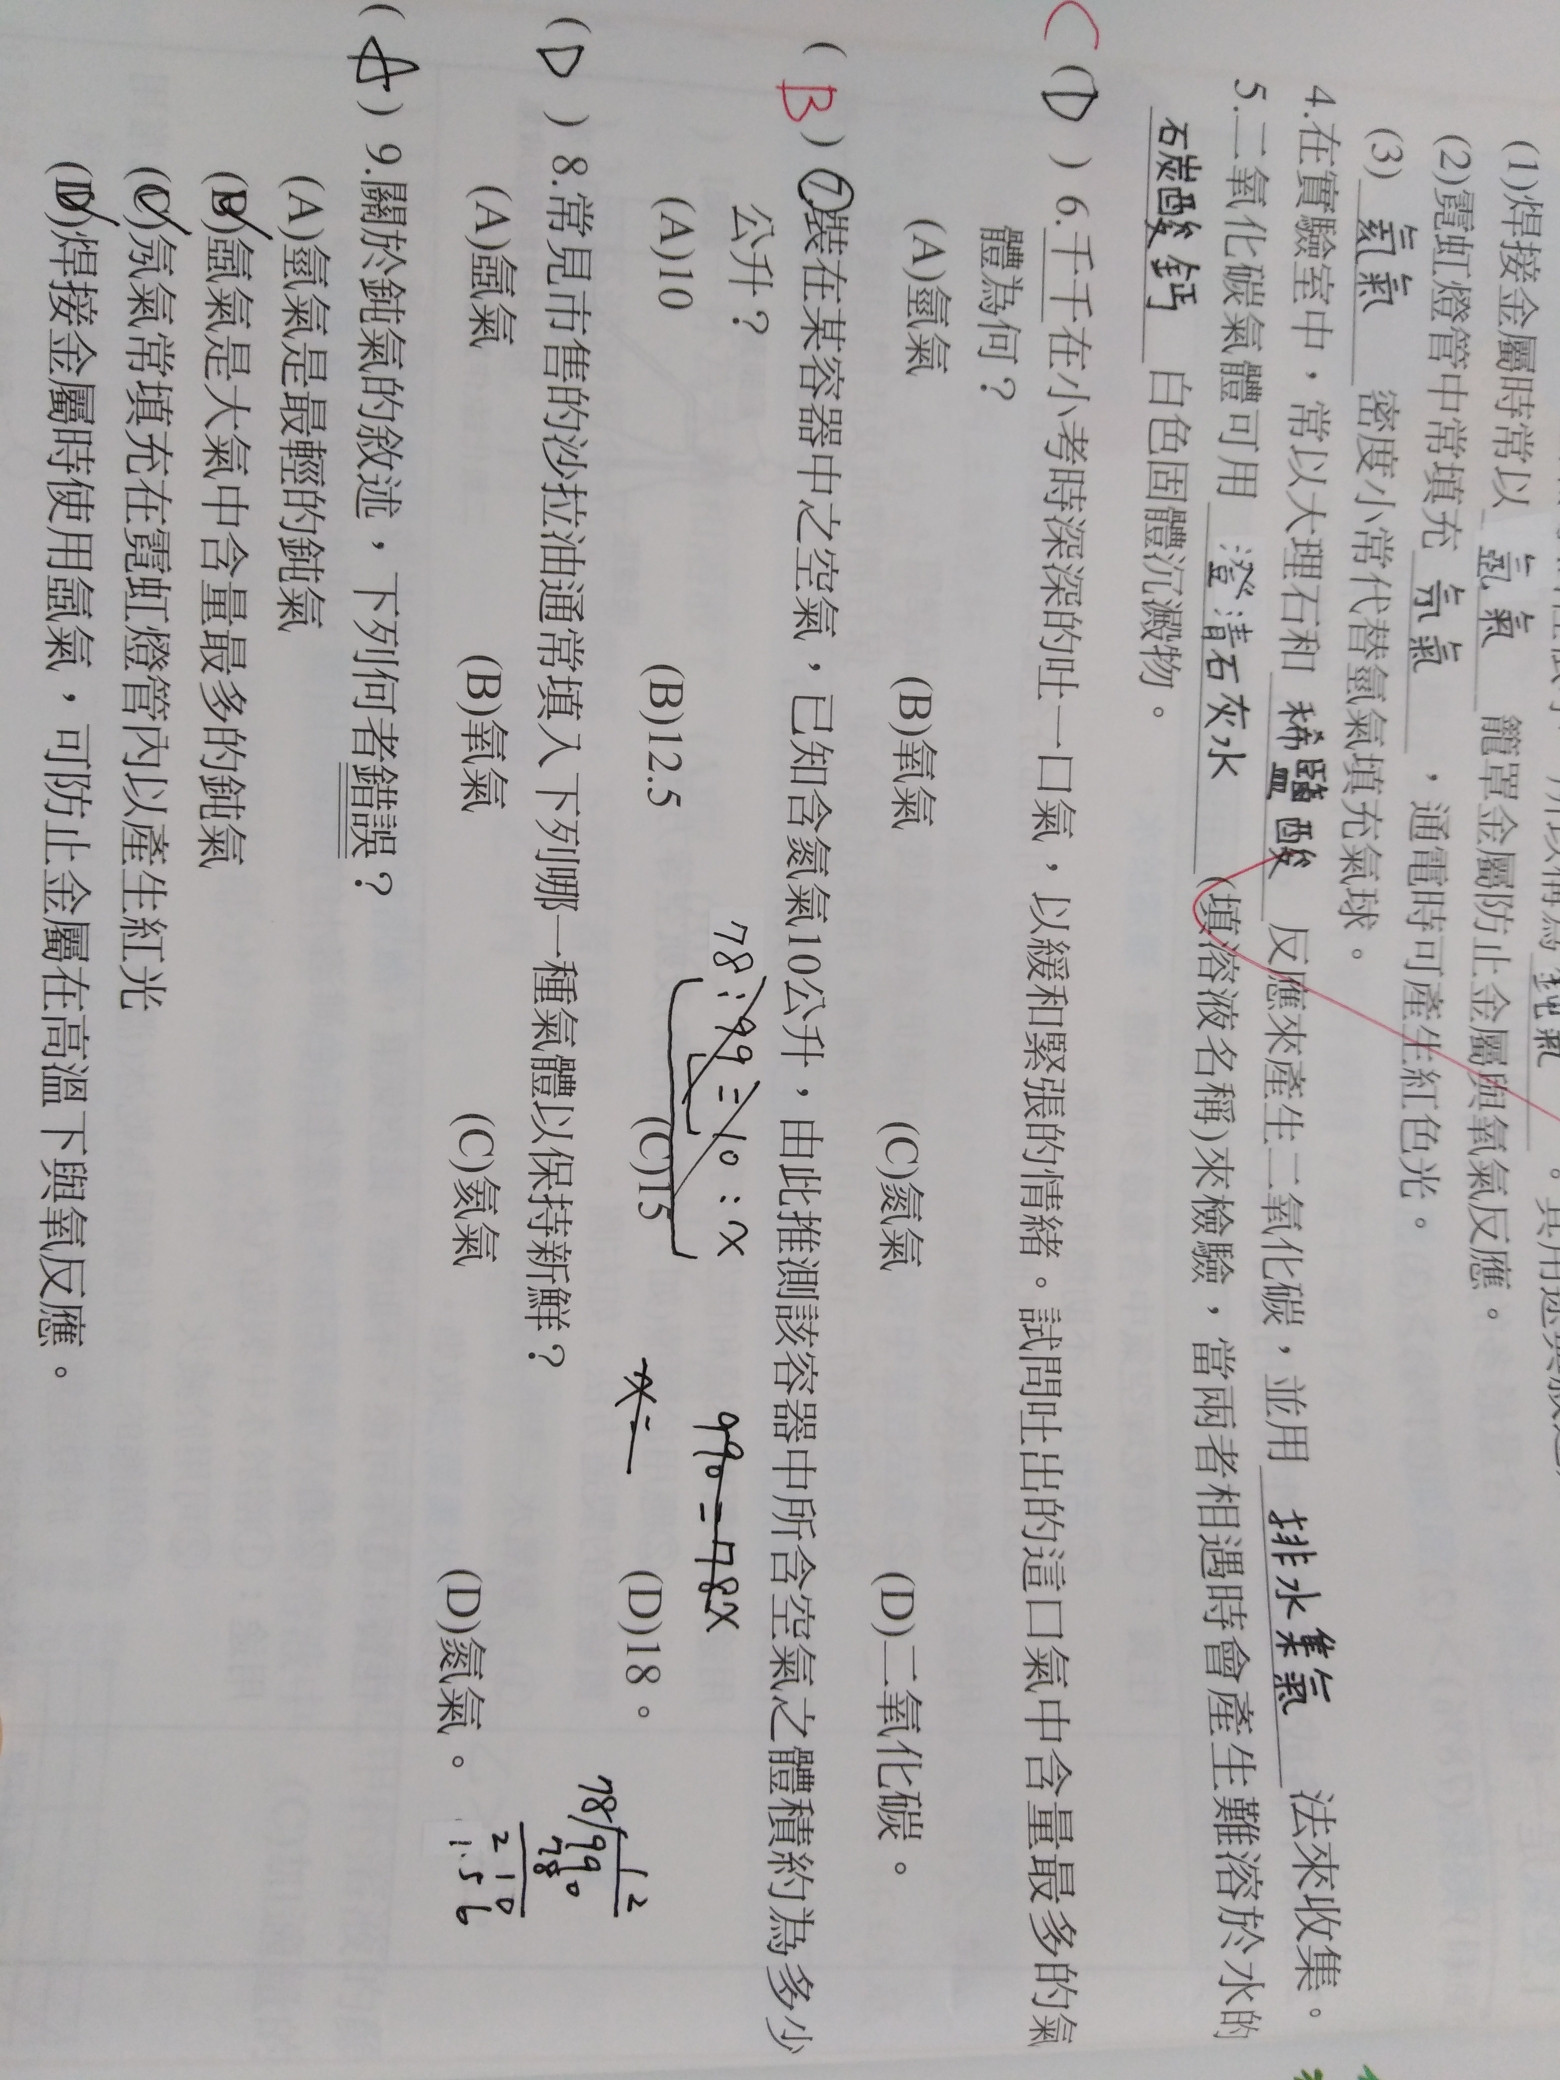 (1)焊接金屬時常以 氬氣 籠罩金屬防止金屬與氧氣反應。
(2)霓虹燈管中常填充 氖氣 ，通電時可產生紅色光。
(3) 氦氣 密度小常代替氫氣填充氣球。
4.在實驗室中，常以大理石和 稀鹽酸 反應來產生二氧化碳，並用 排水集氣 法來收集。
5.二氧化碳氣體可用 澄清石灰水 (填溶液名稱)來檢驗，當兩者相遇時會產生難溶於水的
石炭酸鈣 白色固體沉澱物。
C (D) 6.千千在小考時深深的吐一口氣，以緩和緊張的情緒。試問吐出的這口氣中含量最多的氣
體為何？
(A)氫氣 (B)氧氣 (C)氮氣 (D)二氧化碳。
(B) 7.裝在某容器中之空氣，已知含氮氣10公升，由此推測該容器中所含空氣之體積約為多少
公升？
78:99=10:x 990=78x
(A)10 (B)12.5 (C)15 (D)18。
x=
12
78/990
78
210
1.56
(D) 8.常見市售的沙拉油通常填入下列哪一種氣體以保持新鮮？
(A)氬氣 (B)氧氣 (C)氦氣 (D)氮氣。
(A) 9.關於鈍氣的敘述，下列何者錯誤？
(A)氫氣是最輕的鈍氣
(B)氬氣是大氣中含量最多的鈍氣
(C)氖氣常填充在霓虹燈管內以產生紅光
(D)焊接金屬時使用氬氣，可防止金屬在高溫下與氧反應。